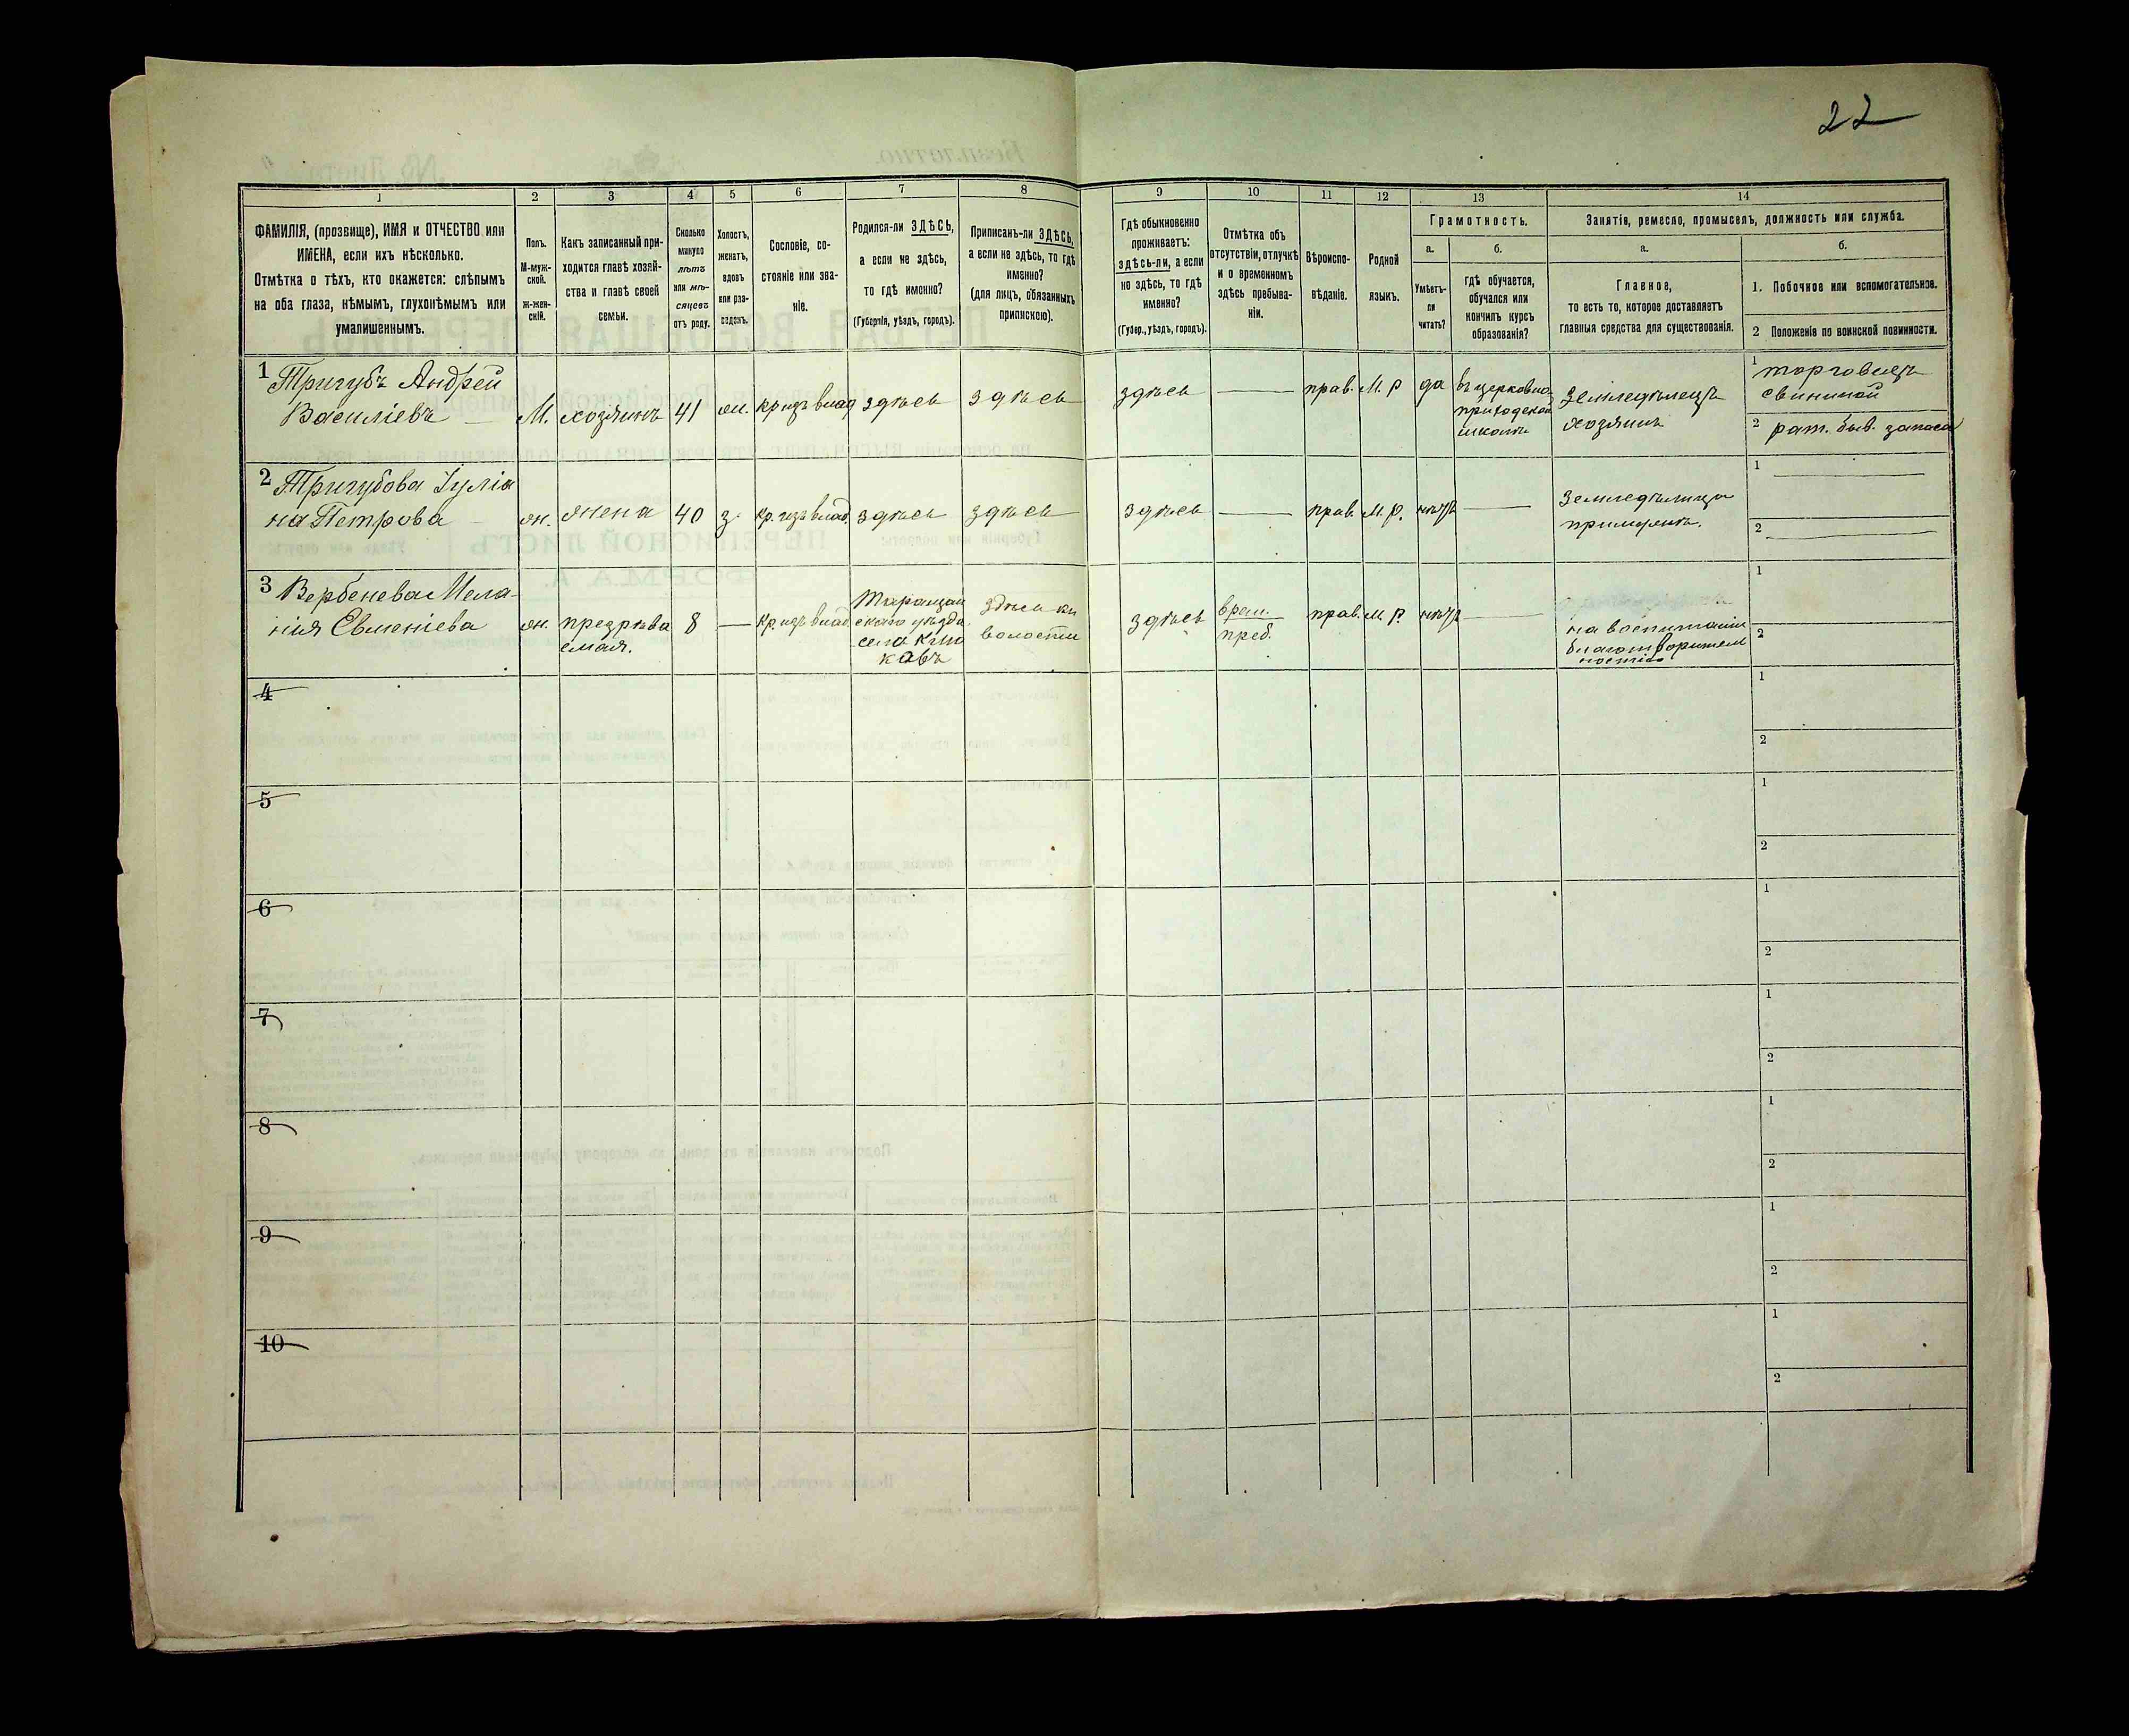 22
1
2
3
4
5
6
7
8
9
10
11
12
13
14
ФАМИЛІЯ, (прозвище), ИМЯ и ОТЧЕСТВО или
ИМЕНА, если ихъ нѣсколько.
Отмѣтка о тѣхъ, кто окажется: слѣпымъ
на оба глаза, нѣмымъ, глухонѣмымъ или
умалишеннымъ.
Полъ.
М-муж-
ской.
ж-жен-
скій.
Какъ записанный при-
ходится главѣ хозяй-
ства и главѣ своей
семьи.
Сколько
минуло
лѣтъ
или мѣ-
сяцевъ
отъ роду.
Холостъ,
женатъ,
вдовъ
или раз-
веденъ.
Сословіе, со-
стояніе или зва-
ніе.
Родился-ли ЗДѢСЬ,
а если не здѣсь,
то гдѣ именно?
(Губернія, уѣздъ, городъ).
Приписанъ-ли ЗДѢСЬ,
а если не здѣсь, то гдѣ
именно?
(для лицъ, обязанныхъ
припискою).
Гдѣ обыкновенно
проживаетъ:
здѣсь-ли, а если
не здѣсь, то гдѣ
именно?
(Губер., уѣздъ, городъ).
Отмѣтка объ
отсутствіи, отлучкѣ
и о временномъ
здѣсь пребыва-
ніи.
Вѣроиспо-
вѣданіе.
Родной
языкъ.
Грамотность.
а.
Умѣетъ-
ли
читать?
б.
гдѣ обучается,
обучался или
кончилъ курсъ
образованія?
Занятія, ремесло, промыселъ, должность или служба.
а.
Главное,
то есть то, которое доставляетъ
главныя средства для существованія.
б.
1. Побочное или вспомогательное.
2 Положеніе по воинской повинности.
1 Тригубъ Андрей
Василіевъ
М.
хозяинъ
41
ж.
кр изъ влад
здѣсь
здѣсь
здѣсь
прав.
М. Р
да
въ церковно
приходской
школѣ
Земледѣлецъ
хозяинъ
1 торговецъ
свининой
2 рат. быв. запаса
2 Тригубова Іуліа
на Петрова
ж.
жена
40
з.
кр. изъ влад.
здѣсь
здѣсь
здѣсь
прав.
М. Р.
нѣтъ
Земледѣлица
при мужѣ.
1
2
3 Вербенева Мела-
нія Евменіева
ж.
предрѣва
емая.
8
кр. изъ влад
Таращан
скаго уѣзда
села
здѣсь къ
волости
здѣсь
врем.
преб.
прав.
М. Р.
нѣтъ
на воспитаніи
благотворител
ности
1
2
4
1
2
5
1
2
6
1
2
7
1
2
8
1
2
9
1
2
10
1
2